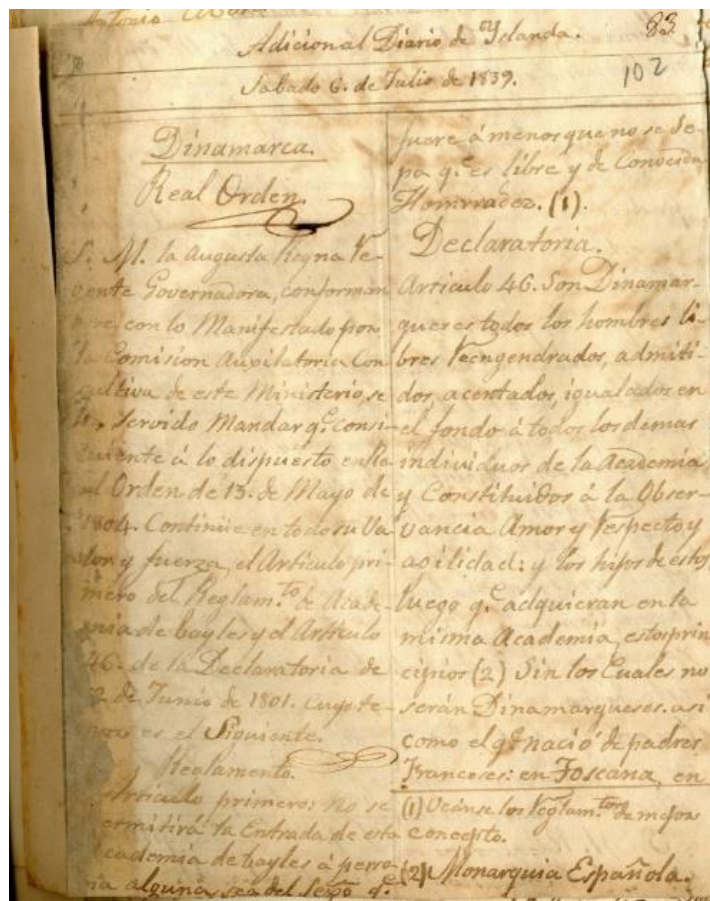 Antonio
Adicional Diario de Yslanda. 83
Sabado 6. de Julio de 1839. 102
Dinamarca.
Real Orden.
S. M. la Augusta Reyna Re-
gente Governadora, conforman
dose con lo Manifestado por
la Comision Auxilatoria Con
sultiva de este Ministerio, se
ha servido Mandar q.e consi-
guiente á lo dispuesto en Re
al Orden de 13. de Mayo de
1804. Continúe en todo su Va
lor y fuerza, el Articulo pri-
mero del Reglam.to de Acade-
mia de bayles y el Articulo
46. de la Declaratoria de
2 de Junio de 1801. cuyo te-
nor es el Siguiente.
Reglamento.
Articulo primero: no se
permitirá la Entrada de esta
Academia de bayles á perso-
na alguna sea del Sexo q.e
fuere á menos que no se Se-
pa q.e es libre y de Conocida
Homrradez. (1).
Declaratoria.
Articulo 46. Son Dinamar-
queses todos los hombres li-
bres Reengendrados, admiti-
dos, acentados, igualados en
el fondo á todos los demas
individuos de la Academia,
y Constituidos á la Obser-
vancia Amor y Respecto y
agilidad: y los hijos de estos,
luego q.e adquieran en la
misma Academia, estos prin
cipios (2) Sin los Cuales no
serán Dinamarqueses. asi
como el q.e nació de padres
Franceses: en Toscana, en
(1) Veanse los Reglam.tos de mejor
concepto.
(2) Monarquia Española.